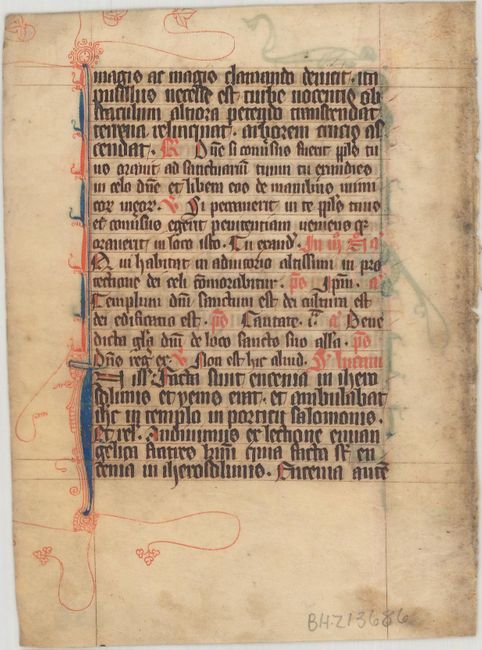 magis ac magis clamando deuicit. ita
pusillus necesse est turbe nocentis ob
staculum altiora petendo transcendat
terrena relinquat. arborem crucis as
cendat. R Dñe si conuersus fuerit ppls tu
us orauerit ad sanctuariũ tuum tu exaudies
in celo dñe et libera eos de manibus inimi
cor
V Si peccauerit in te ppls tuus
et conuersus egerit penitentiam ueniens q
orauerit in loco isto. Tu exaud
Qui habitat in adiutorio altissimi in pro
tectione dei celi cõmorabitur. ps a
Templum dñi sanctum est dei cultura est
dei edificatio est. ps Caritate. a Bene
dicta gla dñi de loco sancto suo alla. ps
Dñs reg ex. V Non est hic aliud.
In ill. Facta sunt encenia in ihero
solimis et yems erat. et ambulabat
ihc in templo in porticu salomonis.
Et rel. Audiuimus ex lectione euuan
gelica fratres kmi quia facta st en
cenia in iherosolimis. Encenia autẽ
BH213686